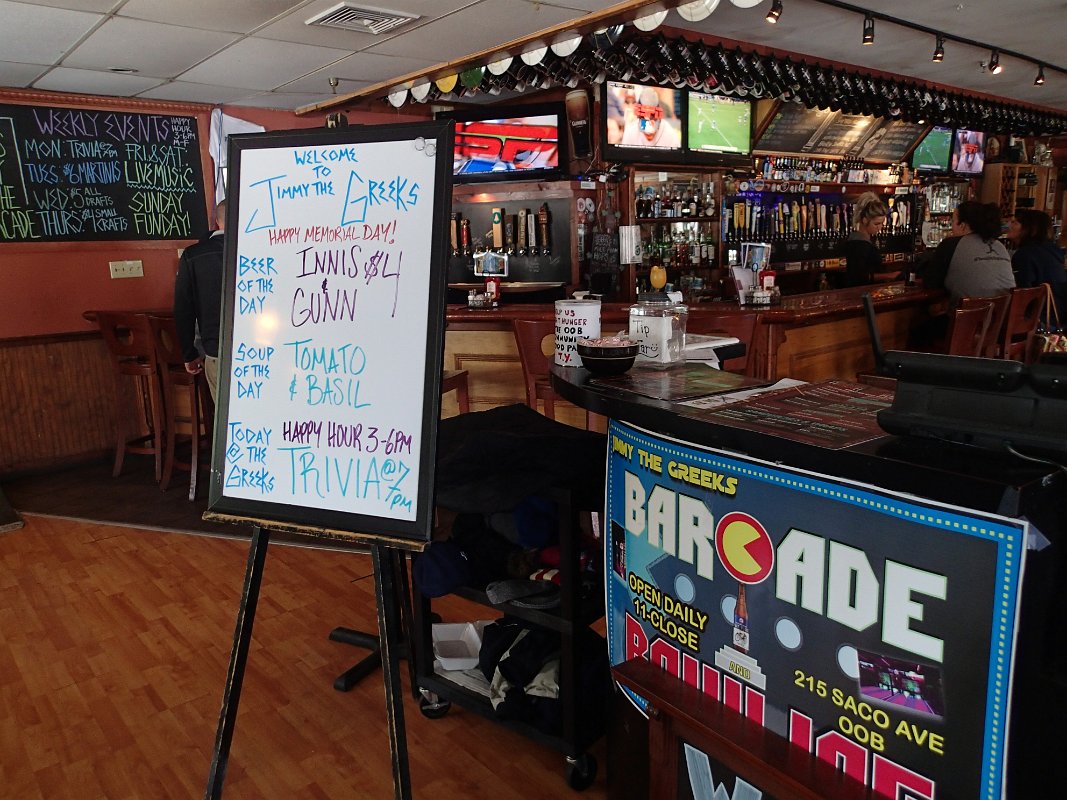 WEEKLY EVENTS
HAPPY
HOUR
3-6PM
M-F
MON. TRIVIA@7PM
TUES. $6 MARTINIS
WED. $5 ALL DRAFTS
THURS. $4 SMALL CRAFTS
FRI & SAT
LIVE MUSIC
SUNDAY
FUNDAY!
WELCOME
TO
JIMMY THE GREEKS
HAPPY MEMORIAL DAY!
BEER
OF THE
DAY
INNIS $4
&
GUNN
SOUP
OF THE
DAY
TOMATO
& BASIL
TODAY
@ THE
GREEKS
HAPPY HOUR 3-6PM
TRIVIA @ 7
PM
ESPN
GUINNESS
Tip
Jar
HELP US
HUNGER
THE OOB
COMMUNITY
FOOD PANTRY
T.Y.
JIMMY THE GREEKS
BARCADE
OPEN DAILY
11-CLOSE
AND
BOWLING
215 SACO AVE
OOB